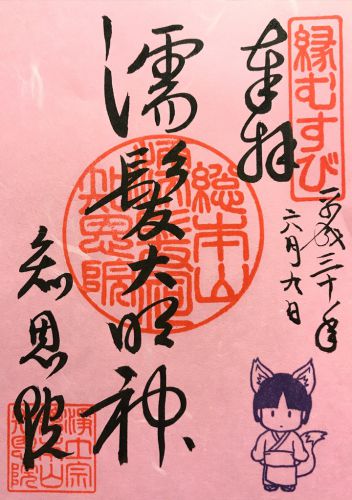 縁むすび
奉拝
平成三十年
六月九日
濡髪大明神
総本山
濡髪堂
知恩院
知恩院
浄土宗
総本山
知恩院